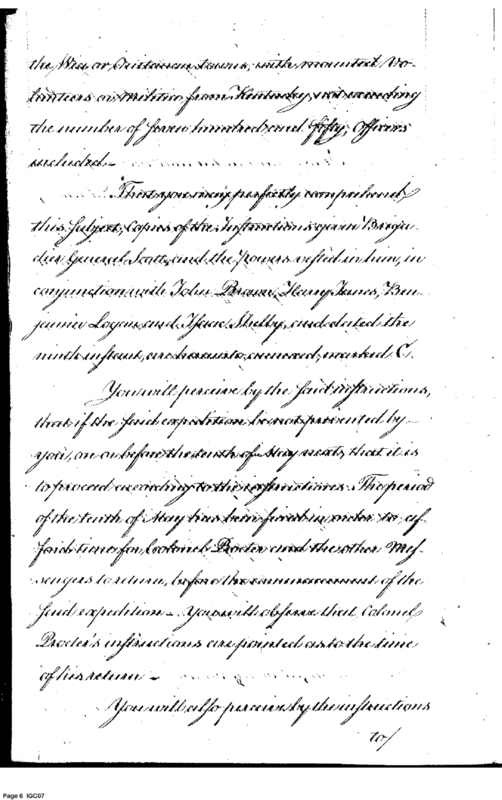 the Wea, or Ouiatanan towns, with mounted Vo-
lunteers or Militia from Kentucky, not exceeding
the number of seven hundred and fifty, Officers
included.—
That you may perfectly comprehend
this Subject, Copies of the Instructions given Briga-
dier General Scott, and the Powers vested in him, in
conjunction with John Brown, Harry Innes, Ben-
jamin Logan, and Isaac Shelby, and dated the
ninth instant, are hereunto annexed, marked C.
You will perceive by the said instructions,
that if the said expedition be not prevented by
you, on or before the tenth of May next, that it is
to proceed according to the instructions. The period
of the tenth of May has been fixed in order to af-
ford time for Colonel Procter and the other Mes-
sengers to return, before the commencement of the
said expedition — You will observe that Colonel
Procter's instructions are pointed as to the time
of his return —
You will also perceive by the instructions
to/
Page 6 IGC07